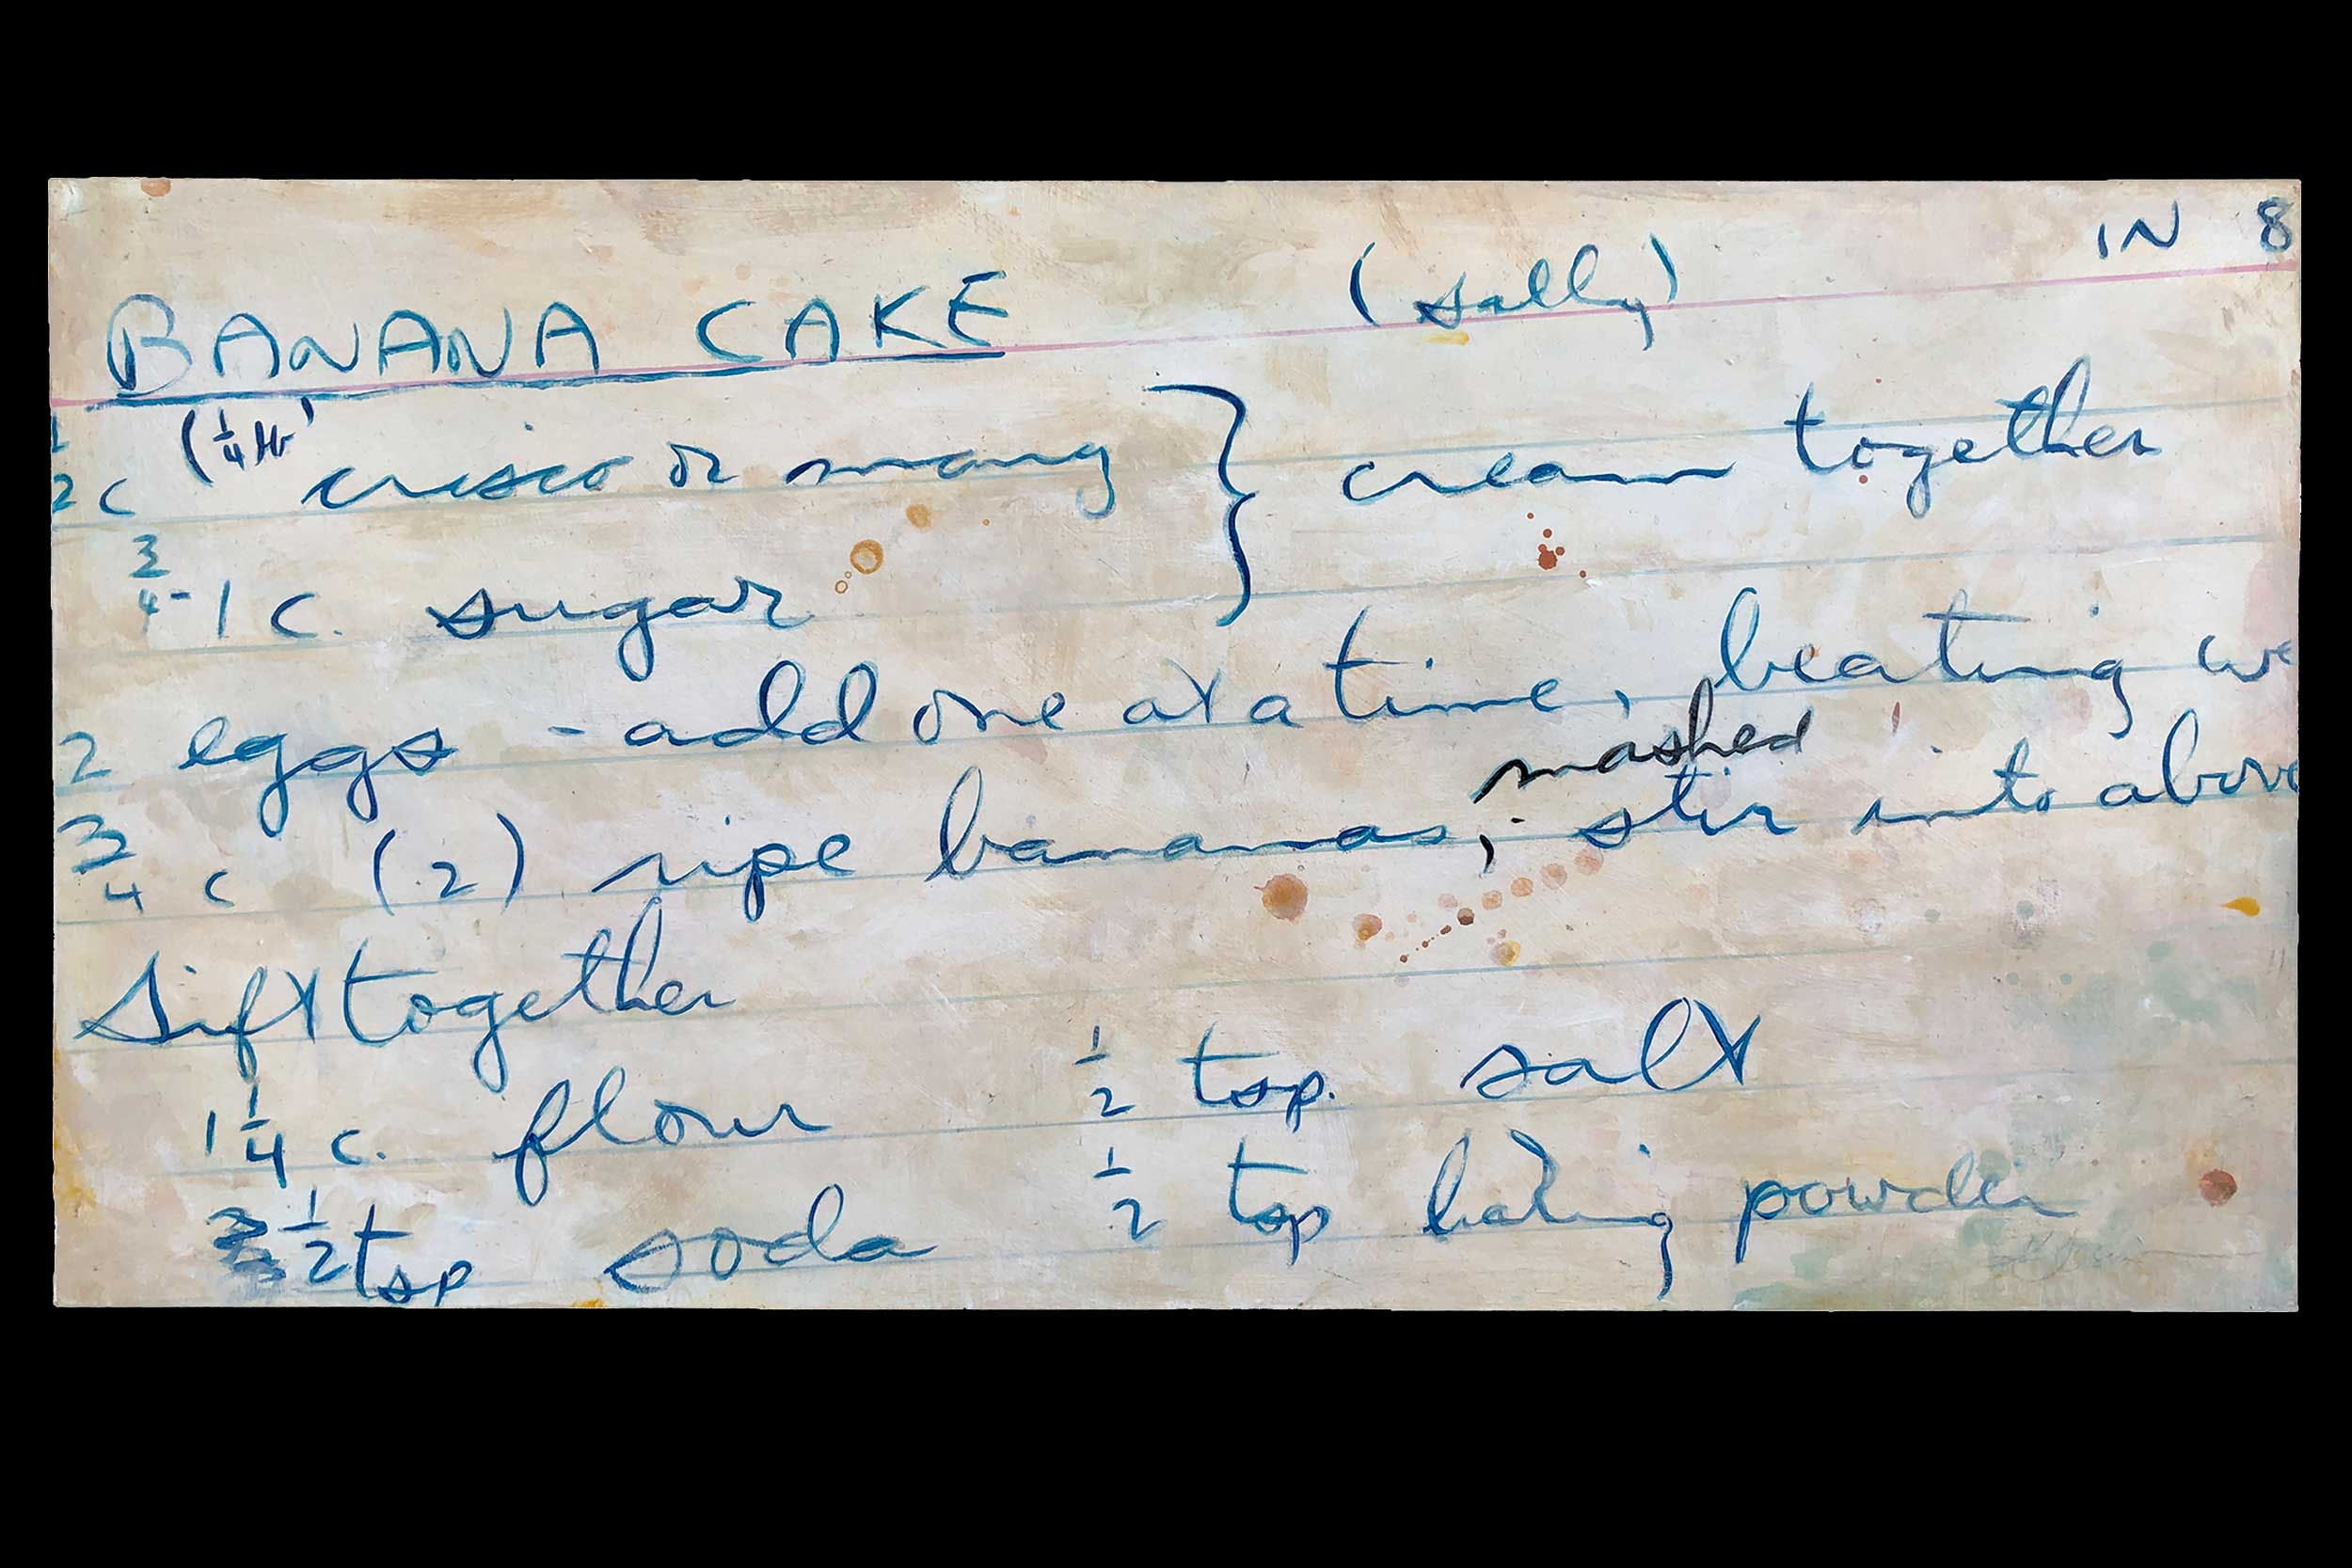 IN 8
BANANA CAKE (Sally)
1/2 c (1/4 lb) crisco or marg } cream together
3/4-1 c. sugar
2 eggs - add one at a time, beating we
mashed
3/4 c (2) ripe bananas; stir into above
Sift together
1 1/4 c. flour 1/2 tsp. salt
1/2 tsp soda 1/2 tsp baking powder